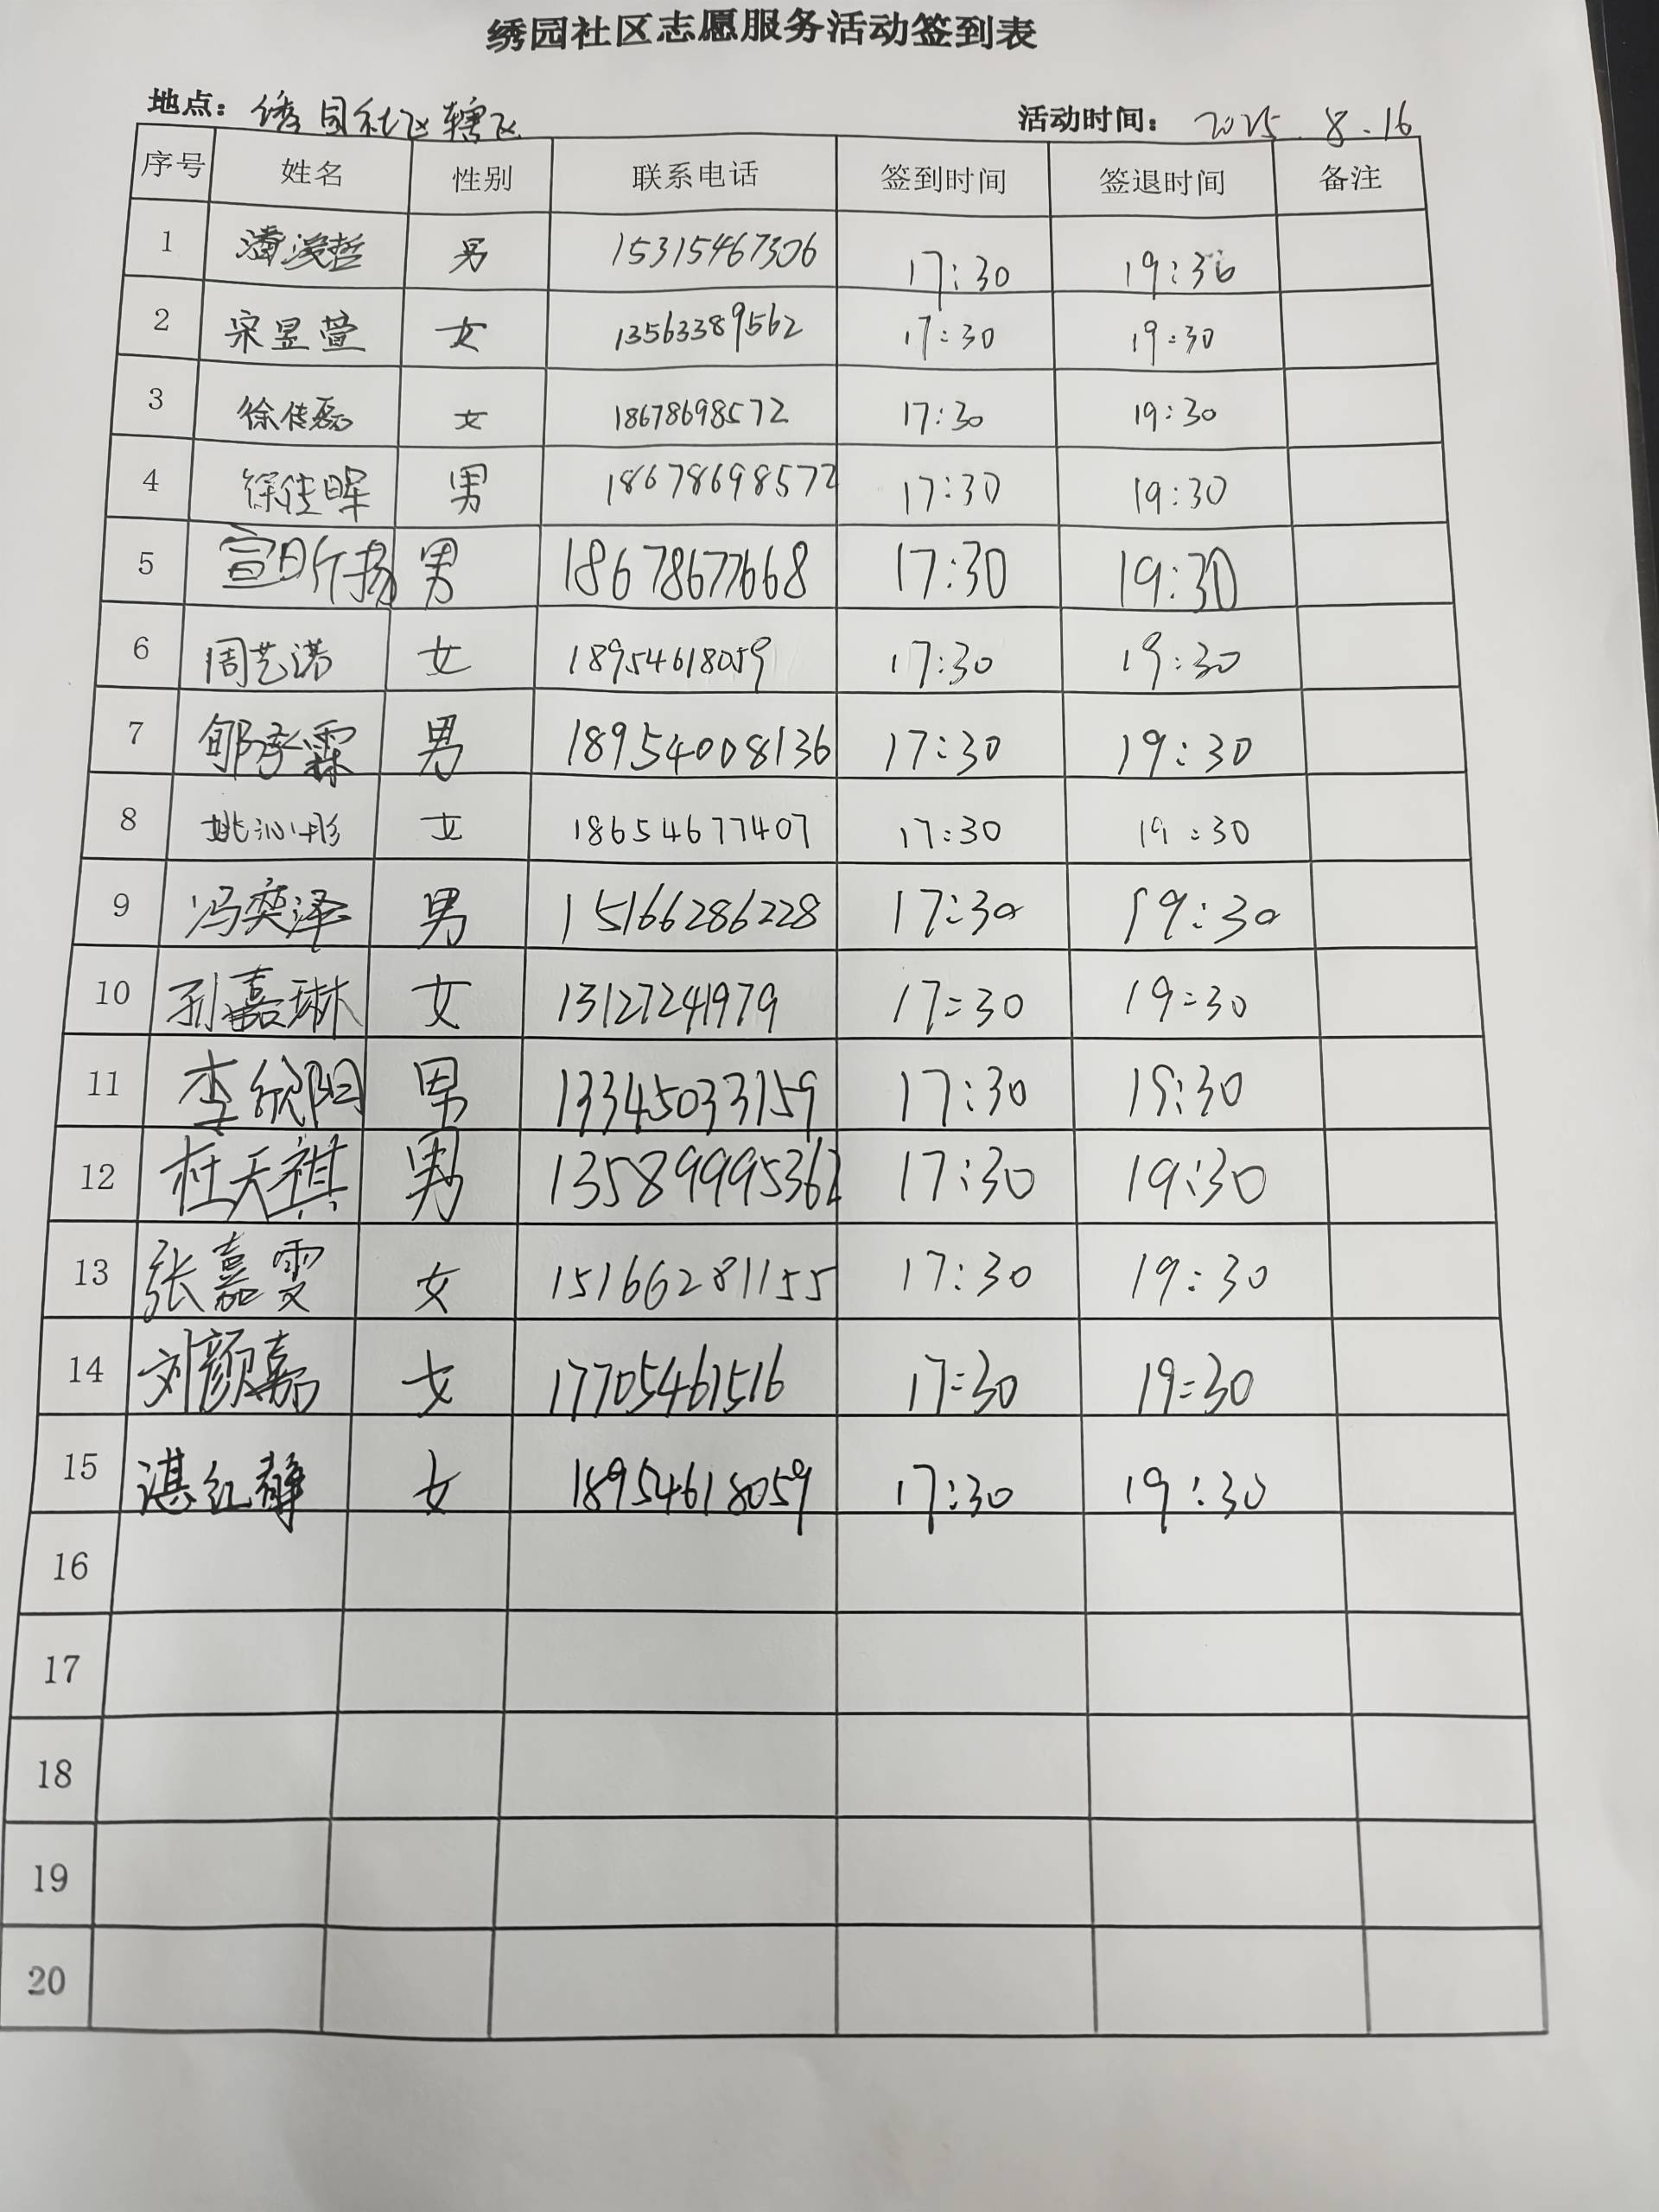 绣园社区志愿服务活动签到表
地点：绣园社区辖区 活动时间：2025.8.16
序号 姓名 性别 联系电话 签到时间 签退时间 备注
1 潘浚哲 男 15315467306 17:30 19:30
2 宋昱萱 女 13563389562 17:30 19:30
3 徐佳磊 女 18678698572 17:30 19:30
4 徐佳晖 男 18678698572 17:30 19:30
5 宣昕扬 男 18678677668 17:30 19:30
6 周艺诺 女 18954618059 17:30 19:30
7 郇承霖 男 18954008136 17:30 19:30
8 姚沁彤 女 18654677407 17:30 19:30
9 冯奕泽 男 15166286228 17:30 19:30
10 孙嘉琳 女 13127241979 17:30 19:30
11 李欣阳 男 13345033159 17:30 19:30
12 杜天祺 男 13589995362 17:30 19:30
13 张嘉雯 女 15166281155 17:30 19:30
14 刘颜嘉 女 17705461516 17:30 19:30
15 湛红静 女 18954618059 17:30 19:30
16
17
18
19
20